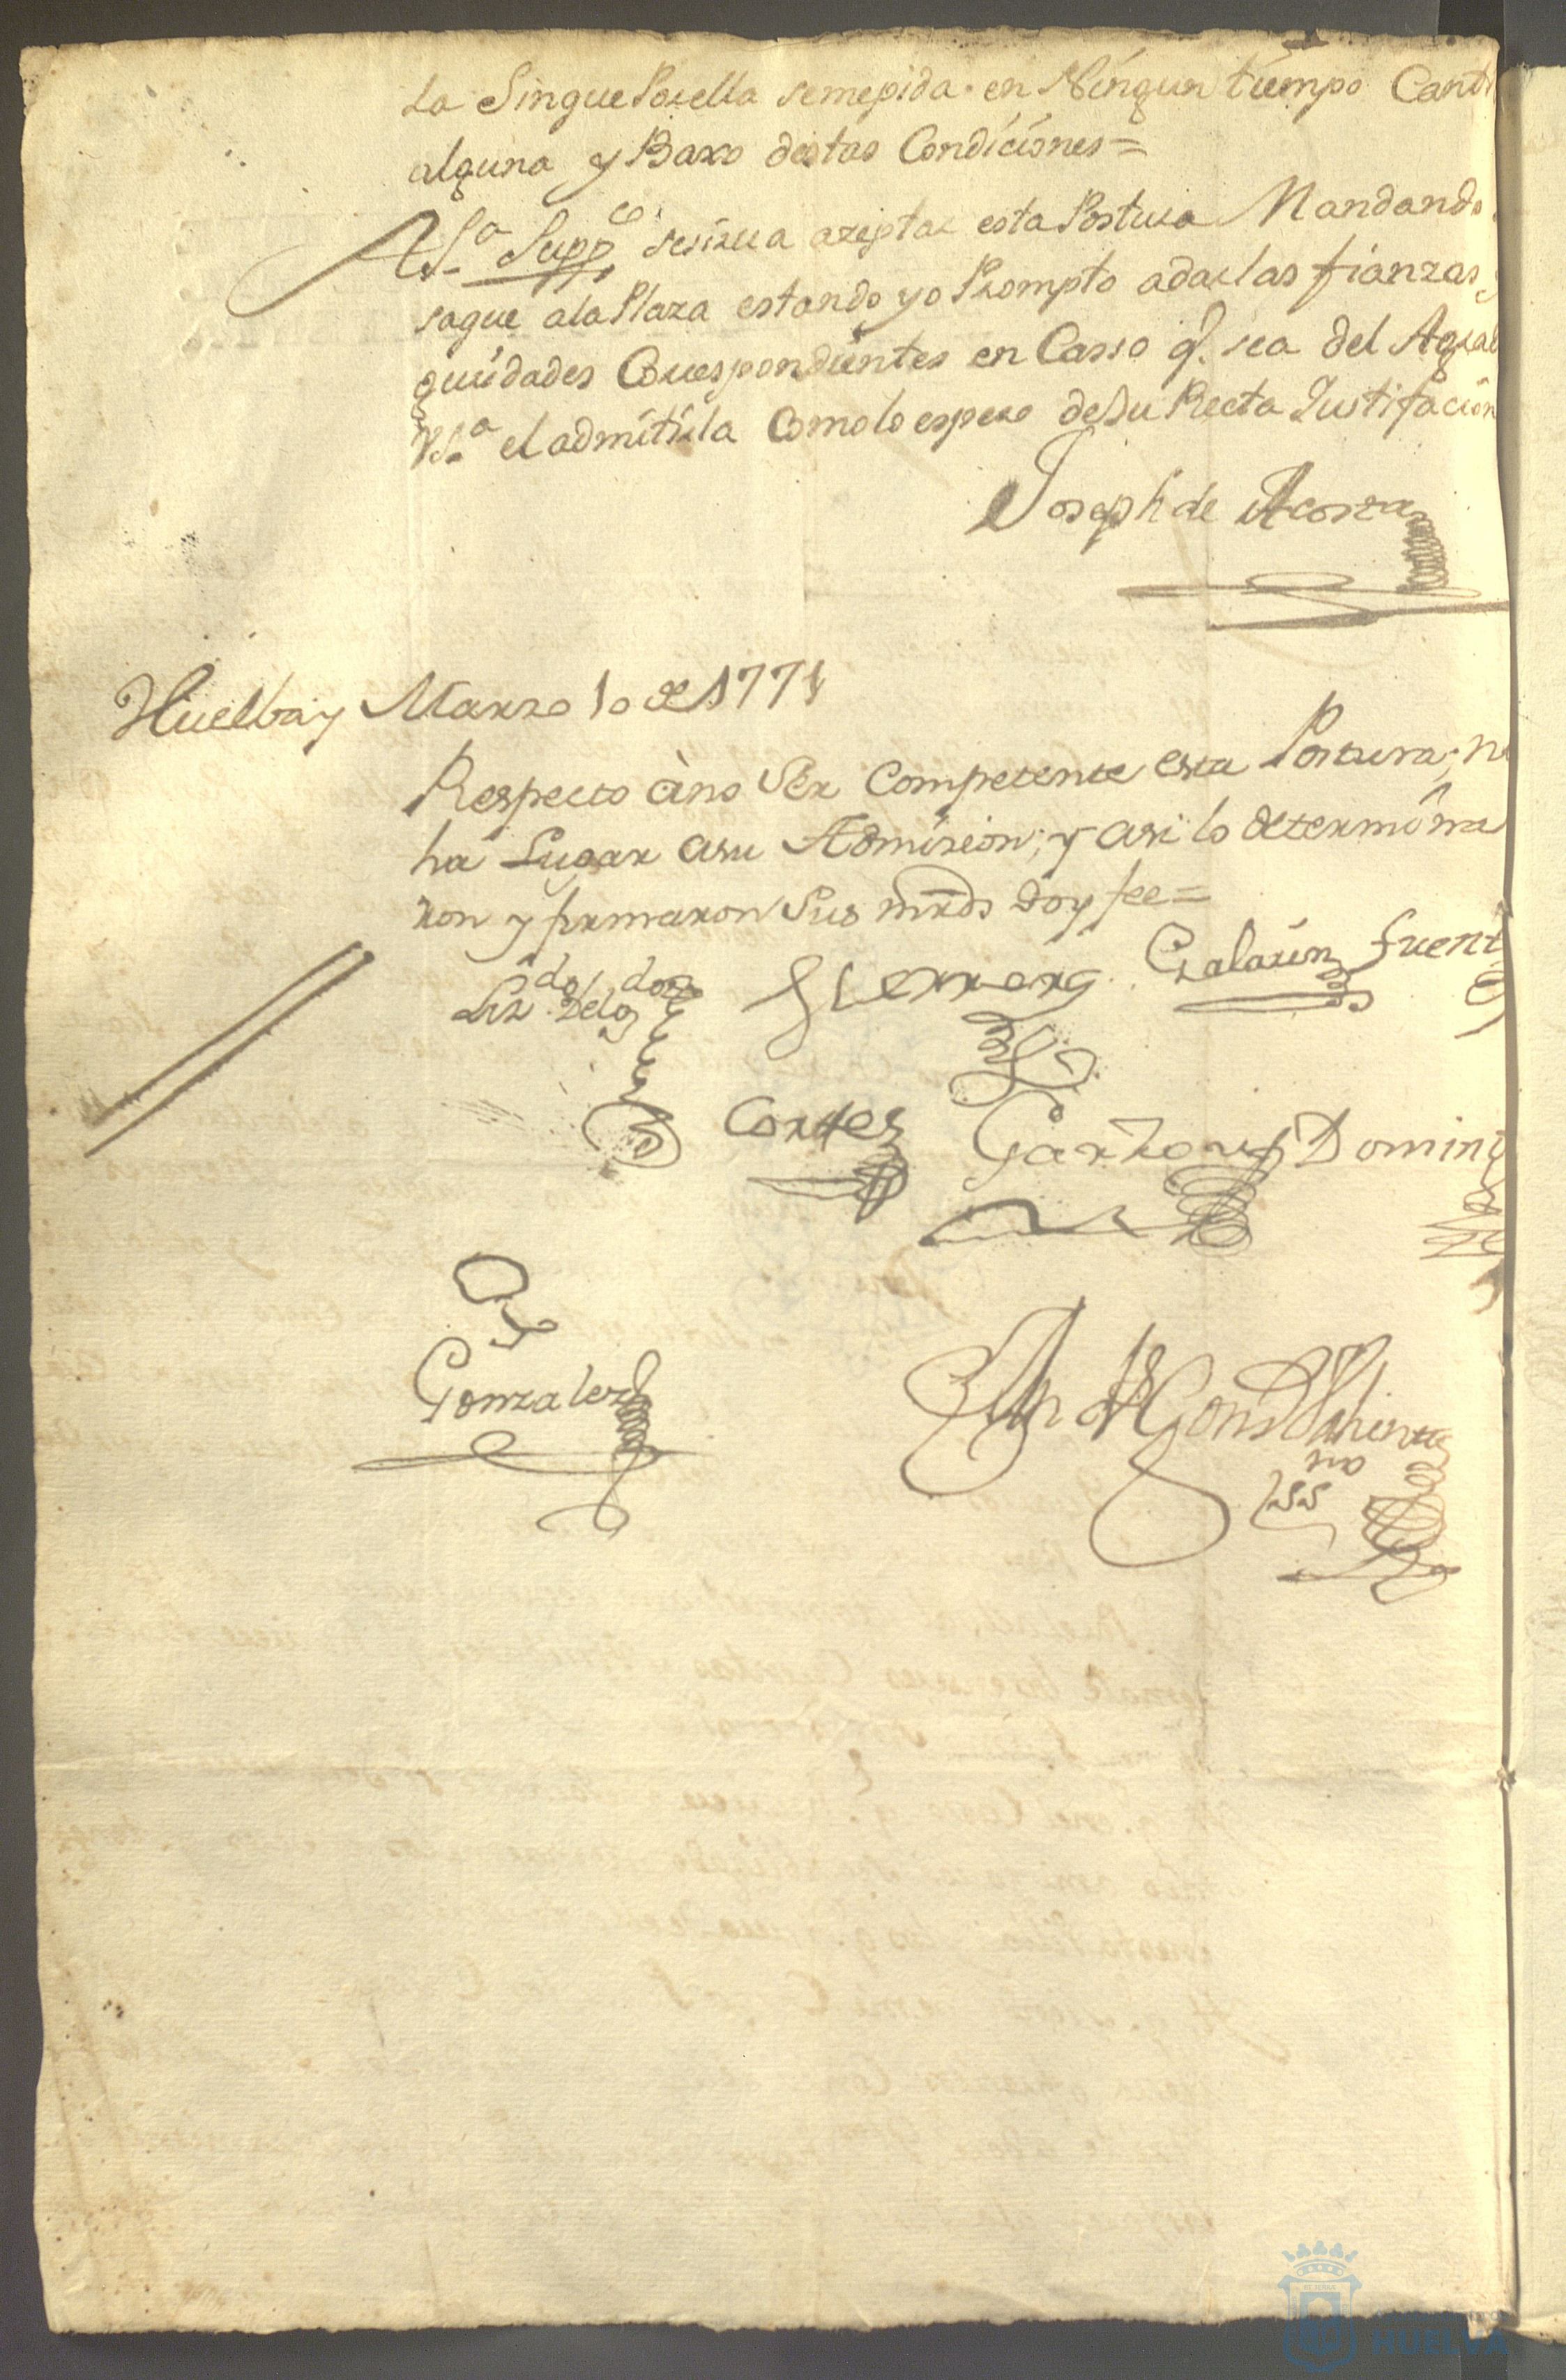 La Singue Por ella se me pida. en Níngun tiempo Canti
alguna y Baxo destas Condiciones=
A V.S.ª Supp.co se sirva azeptar esta Postura Mandando
saque a la Plaza estando yo Prompto a dar las fianzas y
guridades Correspondientes en Casso q.e sea del Agrad
V.S.ª el admitirla Como lo espero de Su Recta Justifación
Joseph de Acosta
Huelba y Marzo 10 de 1771
Respecto àno Ser Competente esta Postura; no
ha Lugar asu Admision; y asi lo determina
ron y firmaron Sus mrds Doy fee=
Liz.do Delgado Herrera Galavin Fuent
Cortes Garzon Doming
Gonzalez
HUELVA